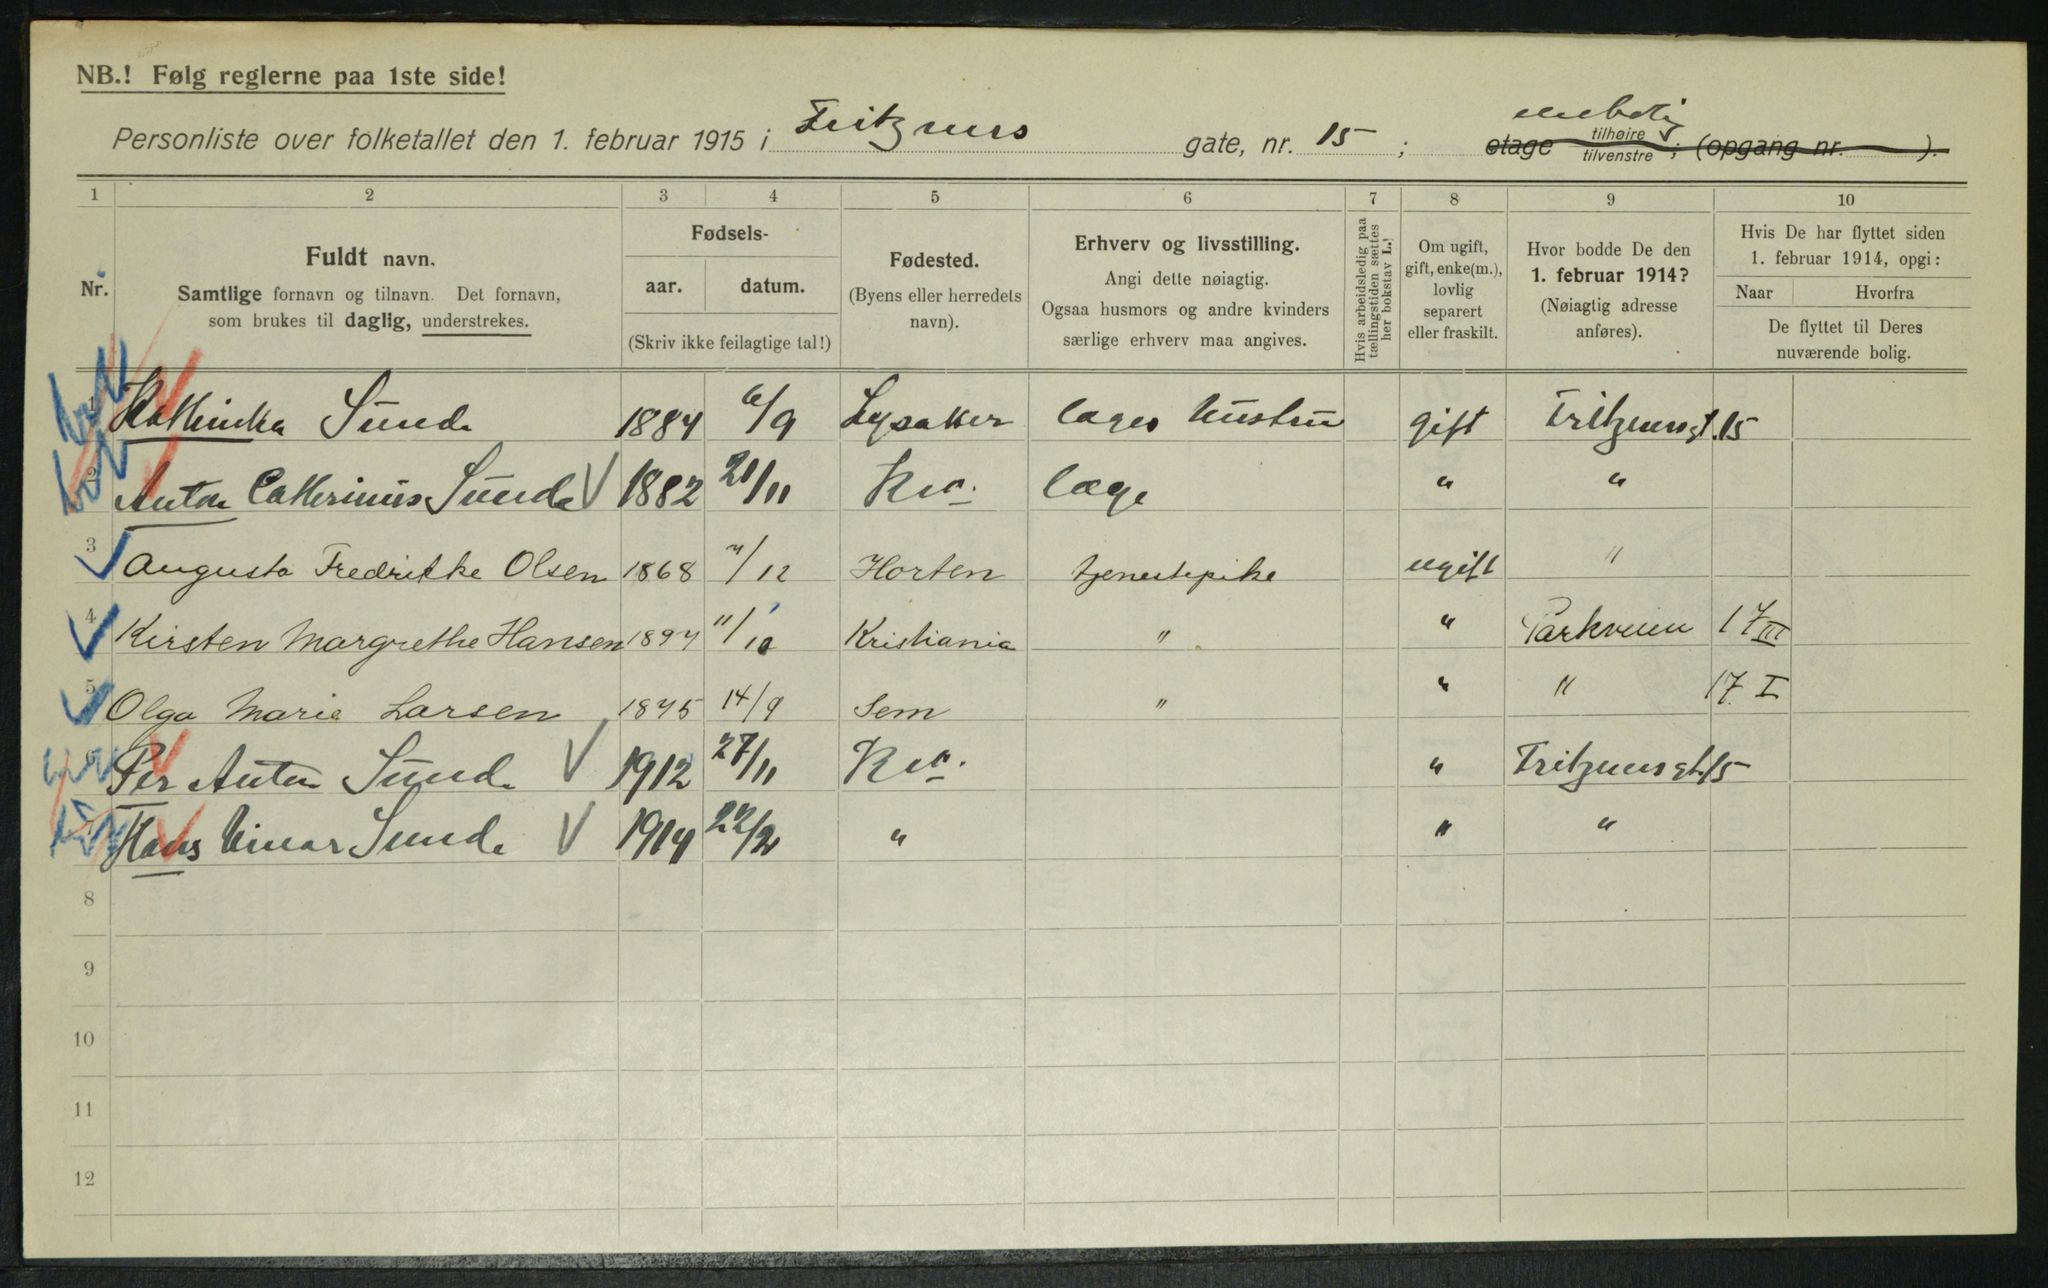 NB.! Følg reglerne paa 1ste side!
enebolig
Personliste over folketallet den 1. februar 1915 i Fritzners gate, nr. 15; etage tilhøire tilvenstre; (opgang nr. ).
1 2 3 4 5 6 7 8 9 10
Nr.
Fuldt navn.
Samtlige fornavn og tilnavn. Det fornavn,
som brukes til daglig, understrekes.
Fødsels-
aar. datum.
(Skriv ikke feilagtige tal!)
Fødested.
(Byens eller herredets
navn).
Erhverv og livsstilling.
Angi dette nøiagtig.
Ogsaa husmors og andre kvinders
særlige erhverv maa angives.
Hvis arbeidsledig paa
tællingstiden sættes
her bokstav L.!
Om ugift,
gift, enke(m.),
lovlig
separert
eller fraskilt.
Hvor bodde De den
1. februar 1914?
(Nøiagtig adresse
anføres).
Hvis De har flyttet siden
1. februar 1914, opgi:
Naar Hvorfra
De flyttet til Deres
nuværende bolig.
1 Kathinka Sunde 1884 6/9 Lysaker læges hustru gift Fritznersgt. 15
2 Anton Catherinus Sunde 1882 21/11 Kra. læge " "
3 Augusta Fredrikke Olsen 1868 7/12 Horten tjenestepike ugift "
4 Kirsten Margrethe Hansen 1894 11/10 Kristiania " " Parkveien 17 III
5 Olga Marie Larsen 1895 14/9 Sem " " " 17 I
6 Per Anton Sunde 1912 27/11 Kra. " Fritznersgt. 15
7 Hans Sunde 1914 22/2 " " "
8
9
10
11
12